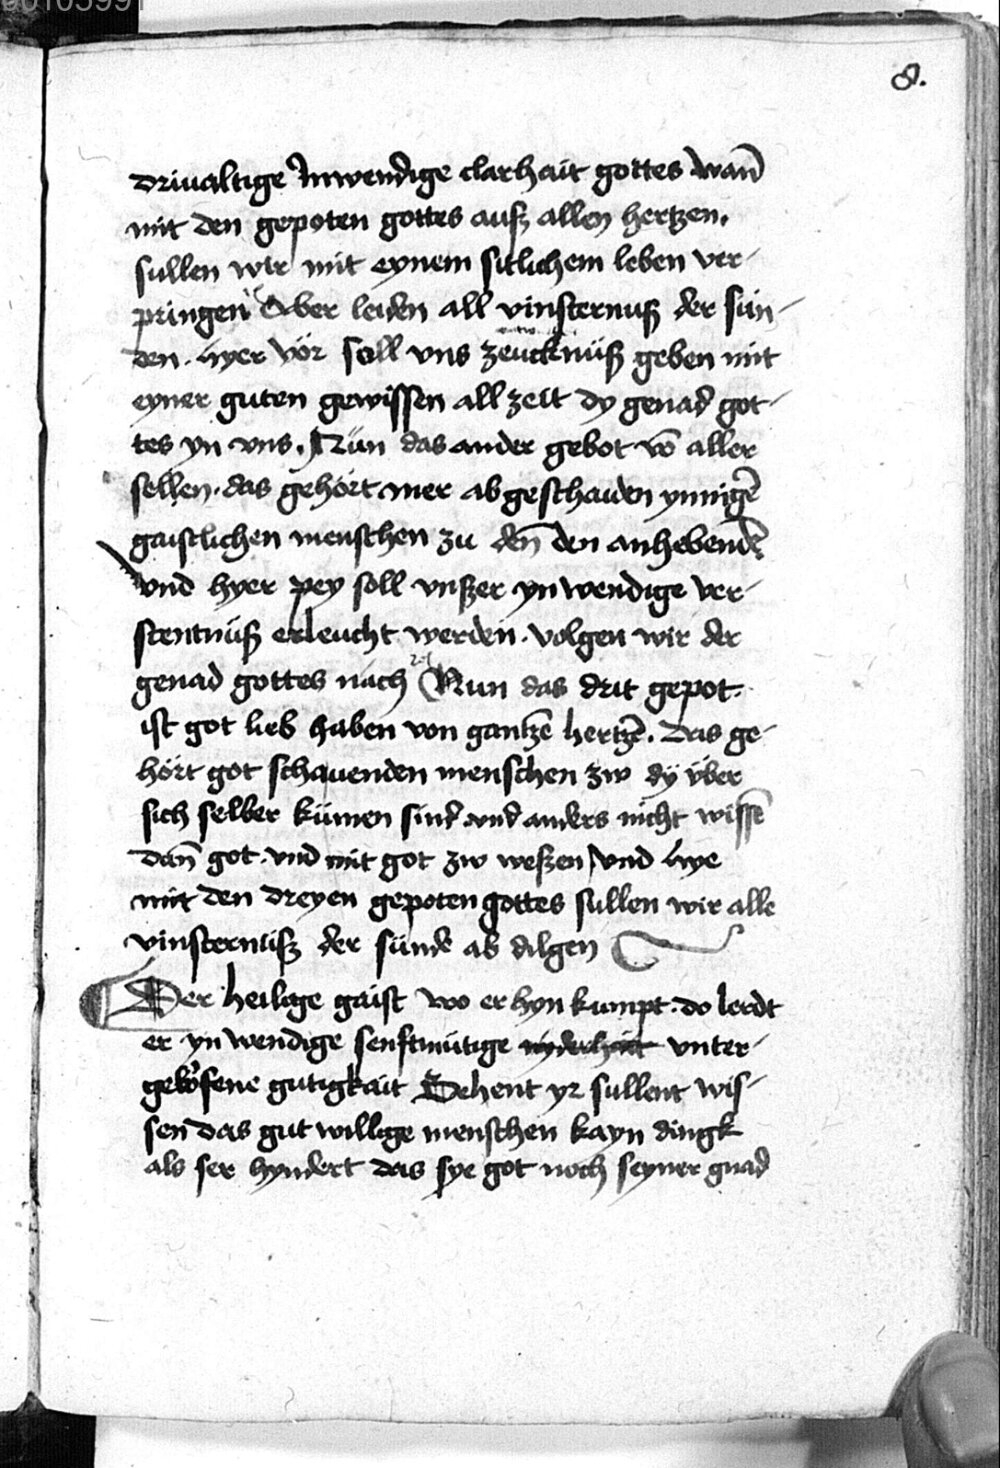 8.
driualtige Jnwendige clarhait gottes wan̄
mit den gepoten gottes auß allen hertzen.
sullen wir mit eynem sitlichem leben ver-
pringen Ober leiden all vinsternuß der sün-
den. hyer vör soll vns zeucknüß geben mit
eyner guten gewissen all zeit dy genad got-
tes yn vns. Nün das ander gebot vō aller
sellen. das gehört mer ab geschaiden ynnigē
gaistlichen menschen zu den̄ den anhebendē
vnd hyer pey soll vnßer ynwendige ver-
stentnüß erleucht werden. volgen wir der
genad gottes nach Nun das drit gepot.
ist got lieb haben von gantzē hertzē. Das ge-
hört got schauenden menschen zw dÿ über
sich selber kümen sind vnd anders nicht wissē
dan̄ got. vnd mit got zw weßen vnd hye
mit den dreyen gepoten gottes sullen wir alle
vinsternüß der sünde ab dilgen
Der heilige gaist wo er hyn kumpt. do lerdt
er ynwendige senftmütige vnter-
geworfene gutigkait Sehent yr sullent wis-
sen das gut willige menschen kayn dingk
als ser hyndert das sye got noch seyner gnad